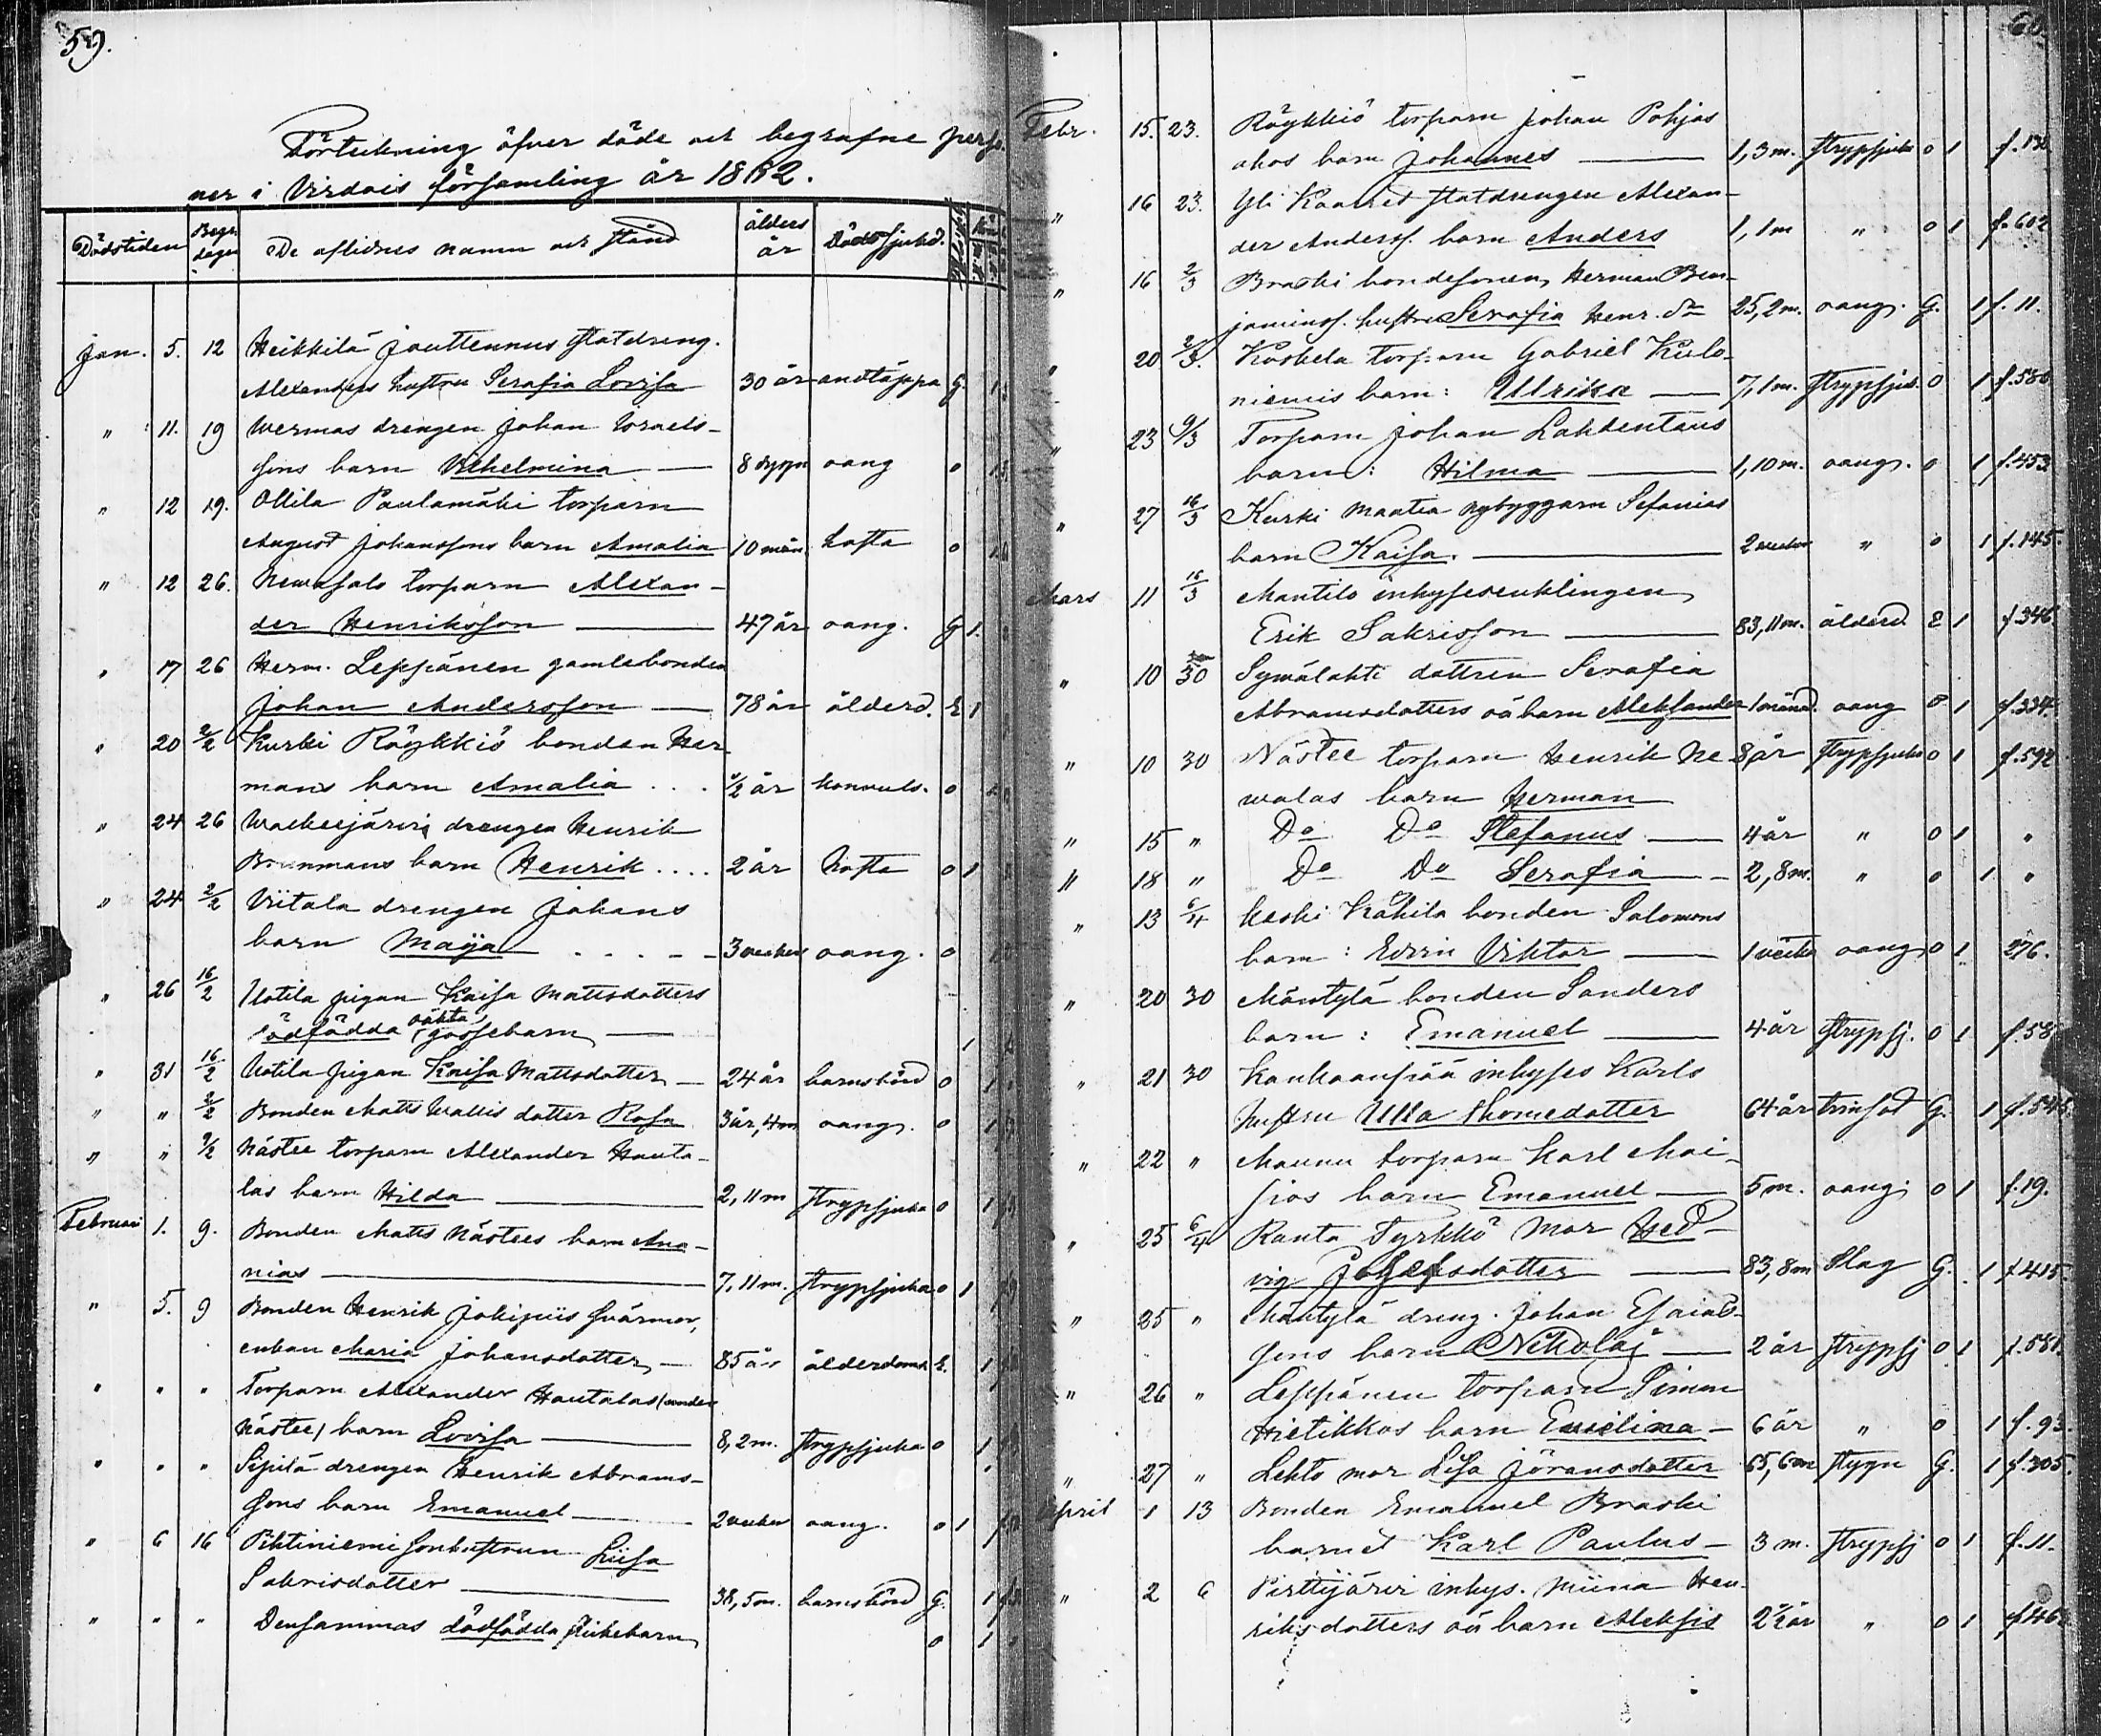 59.
Förteckning öfver döde och begrafne perso
ner i Virdois församling år 1882.
Dödstiden Begr. dagen De aflidnes namn och stånd ålders år Dödssjukd.
Jan. 5. 12 Heikkilä Jouttennus statdreng.
Alexanders hustru Serafia Lovisa 30 år andtäppa G
" 11. 19 Wermas drengen Johan Israels-
sons barn Vilhelmina — 8 dygn oang o
" 12 19. Ollila Paulamäki torparn
August Johanssons barn Amalia 10 mån. hosta o
" 12 26. Newasalo torparn Alexan-
der Henriksson — 47 år oang. G 1.
" 17 26 Herm. Leppänen gamlebonden
Johan Andersson — 78 år ålderd. E 1
" 20 2/2 Kurki Röykkiö bonden Her-
mans barn Amalia . . . ½ år konvuls. o
" 24 26 Waskesjärvi drengen Henrik
Brunmans barn Henrik .... 2 år hosta o 1
" 24 2/2 Viitala drengen Johans
barn Maija . . . - 3 veckor oang. o
" 26 16/2 Uotila pigan Kaisa Mattsdotters
dödfödda oäkta gossebarn — 1
" 31 16/2 Uotila pigan Kaisa Mattsdotter — 24 år barnsbörd o 1
" " 2/2 Bonden Matts Wallis dotter Rosa 3 år, 4 m oang. o 1
" " 9/2 Nästee torparn Alexander Hauta-
las barn Hilda — 2, 11 m strypsjuka o 1
Februari 1. 9. Bonden Matts Nästees barn Ana-
nias — 7, 11 m. strypsjuka o 1
" 5. 9 Bonden Henrik Jokipiis svärmor,
enkan Maria Johansdotter — 85 år ålderdoms E. 1
" " " Torparn Alexander Hautalas (under
Nästee) barn Lovisa — 8, 2 m. strypsjuka o 1
" " " Sipilä drengen Henrik Abrams-
sons barn Emanuel — 2 veckor oang. o 1
" 6 16 Pihtiniemi sonhustrun Liisa
Sakrisdotter — 38, 5 m. barnsbörd G. 1
" " " Densammas dödfödda flickebarn o 1
60.
Febr. 15. 23. Röykkiö torparn Johan Pohjas
ahos barn Johannes — 1, 3 m. strypsjuka o 1
" 16 23. Yli Kaanet statdrengen Alexan-
der Anderss. barn Anders 1, 1 m " o 1 f. 602
" 16 2/3 Braski bondesonen Herman Ben-
jaminss. hustru Serafia Henr. dr 25, 2 m. oang. G. 1 f. 11.
" 20 2/3. Koskela torparn Gabriel Kulo-
niemis barn: Ulrika — 7, 1 m. strypsjuk. o 1 f. 580
" 23 9/3 Torparn Johan Lahdentaus
barn: Hilma — 1, 10 m. oang. o 1 f. 453
" 27 16/3 Kurki Maatia nybyggarn Sefanias
barn Kaisa. — 2 veckor " o 1 f. 145.
Mars 11 16/3 Mantila inhysesenklingen
Erik Sakrisson — 83, 11 m. ålderd E 1 f. 346
" 10 30 Sywälahti dottren Serafia
Abramsdotters oä barn Aleksander 1 månad. oang o 1 f. 334.
" 10 30 Nästee torparn Henrik Ne 8 år strypsjuka o 1 f. 592
walas barn Herman
" 15 " Do Do Stefanus — 4 år " o 1 "
" 18 " Do Do Serafia — 2, 8 m. " o 1 "
" 13 6/4 Keski Kähilä bonden Salomons
barn: Edvin Viktor — 1 vecka oang o 1 276.
" 20 30 Mäntylä bonden Sanders
barn: Emanuel — 4 år strypsj. o 1 f. 58
" 21 30 Kaukaanpää inhyses Karls
hustru Ulla Thomedotter 64 år trinsot G. 1 f. 545
" 22 " Maunu torparn Karl Mai-
sios barn Emanuel — 5 m. oang. o 1 f. 19.
" 25 6/4 Ranta Tyrkkö Mor Hed-
vig Josefsdotter — 83, 8 m Slag G. 1 f. 415.
" 25 " Mäntylä dreng. Johan Esaias-
sons barn Nikolaj — 2 år strypsj o 1 f. 581.
" 26 " Leppänen torparn Simon
Hietikkos barn Eveliina — 6 år " o 1 f. 93.
" 27 " Lehto mor Lisa Jöransdotter 65, 6 m stygn G. 1 f. 305.
April 1 13 Bonden Emanuel Braski
barnet Karl Paulus — 3 m. strypsj o 1 f. 11.
" 2 6 Pirttijärvi inhys. Miina Hen-
riksdotters oä barn Aleksis 2½ år " o 1 f. 46